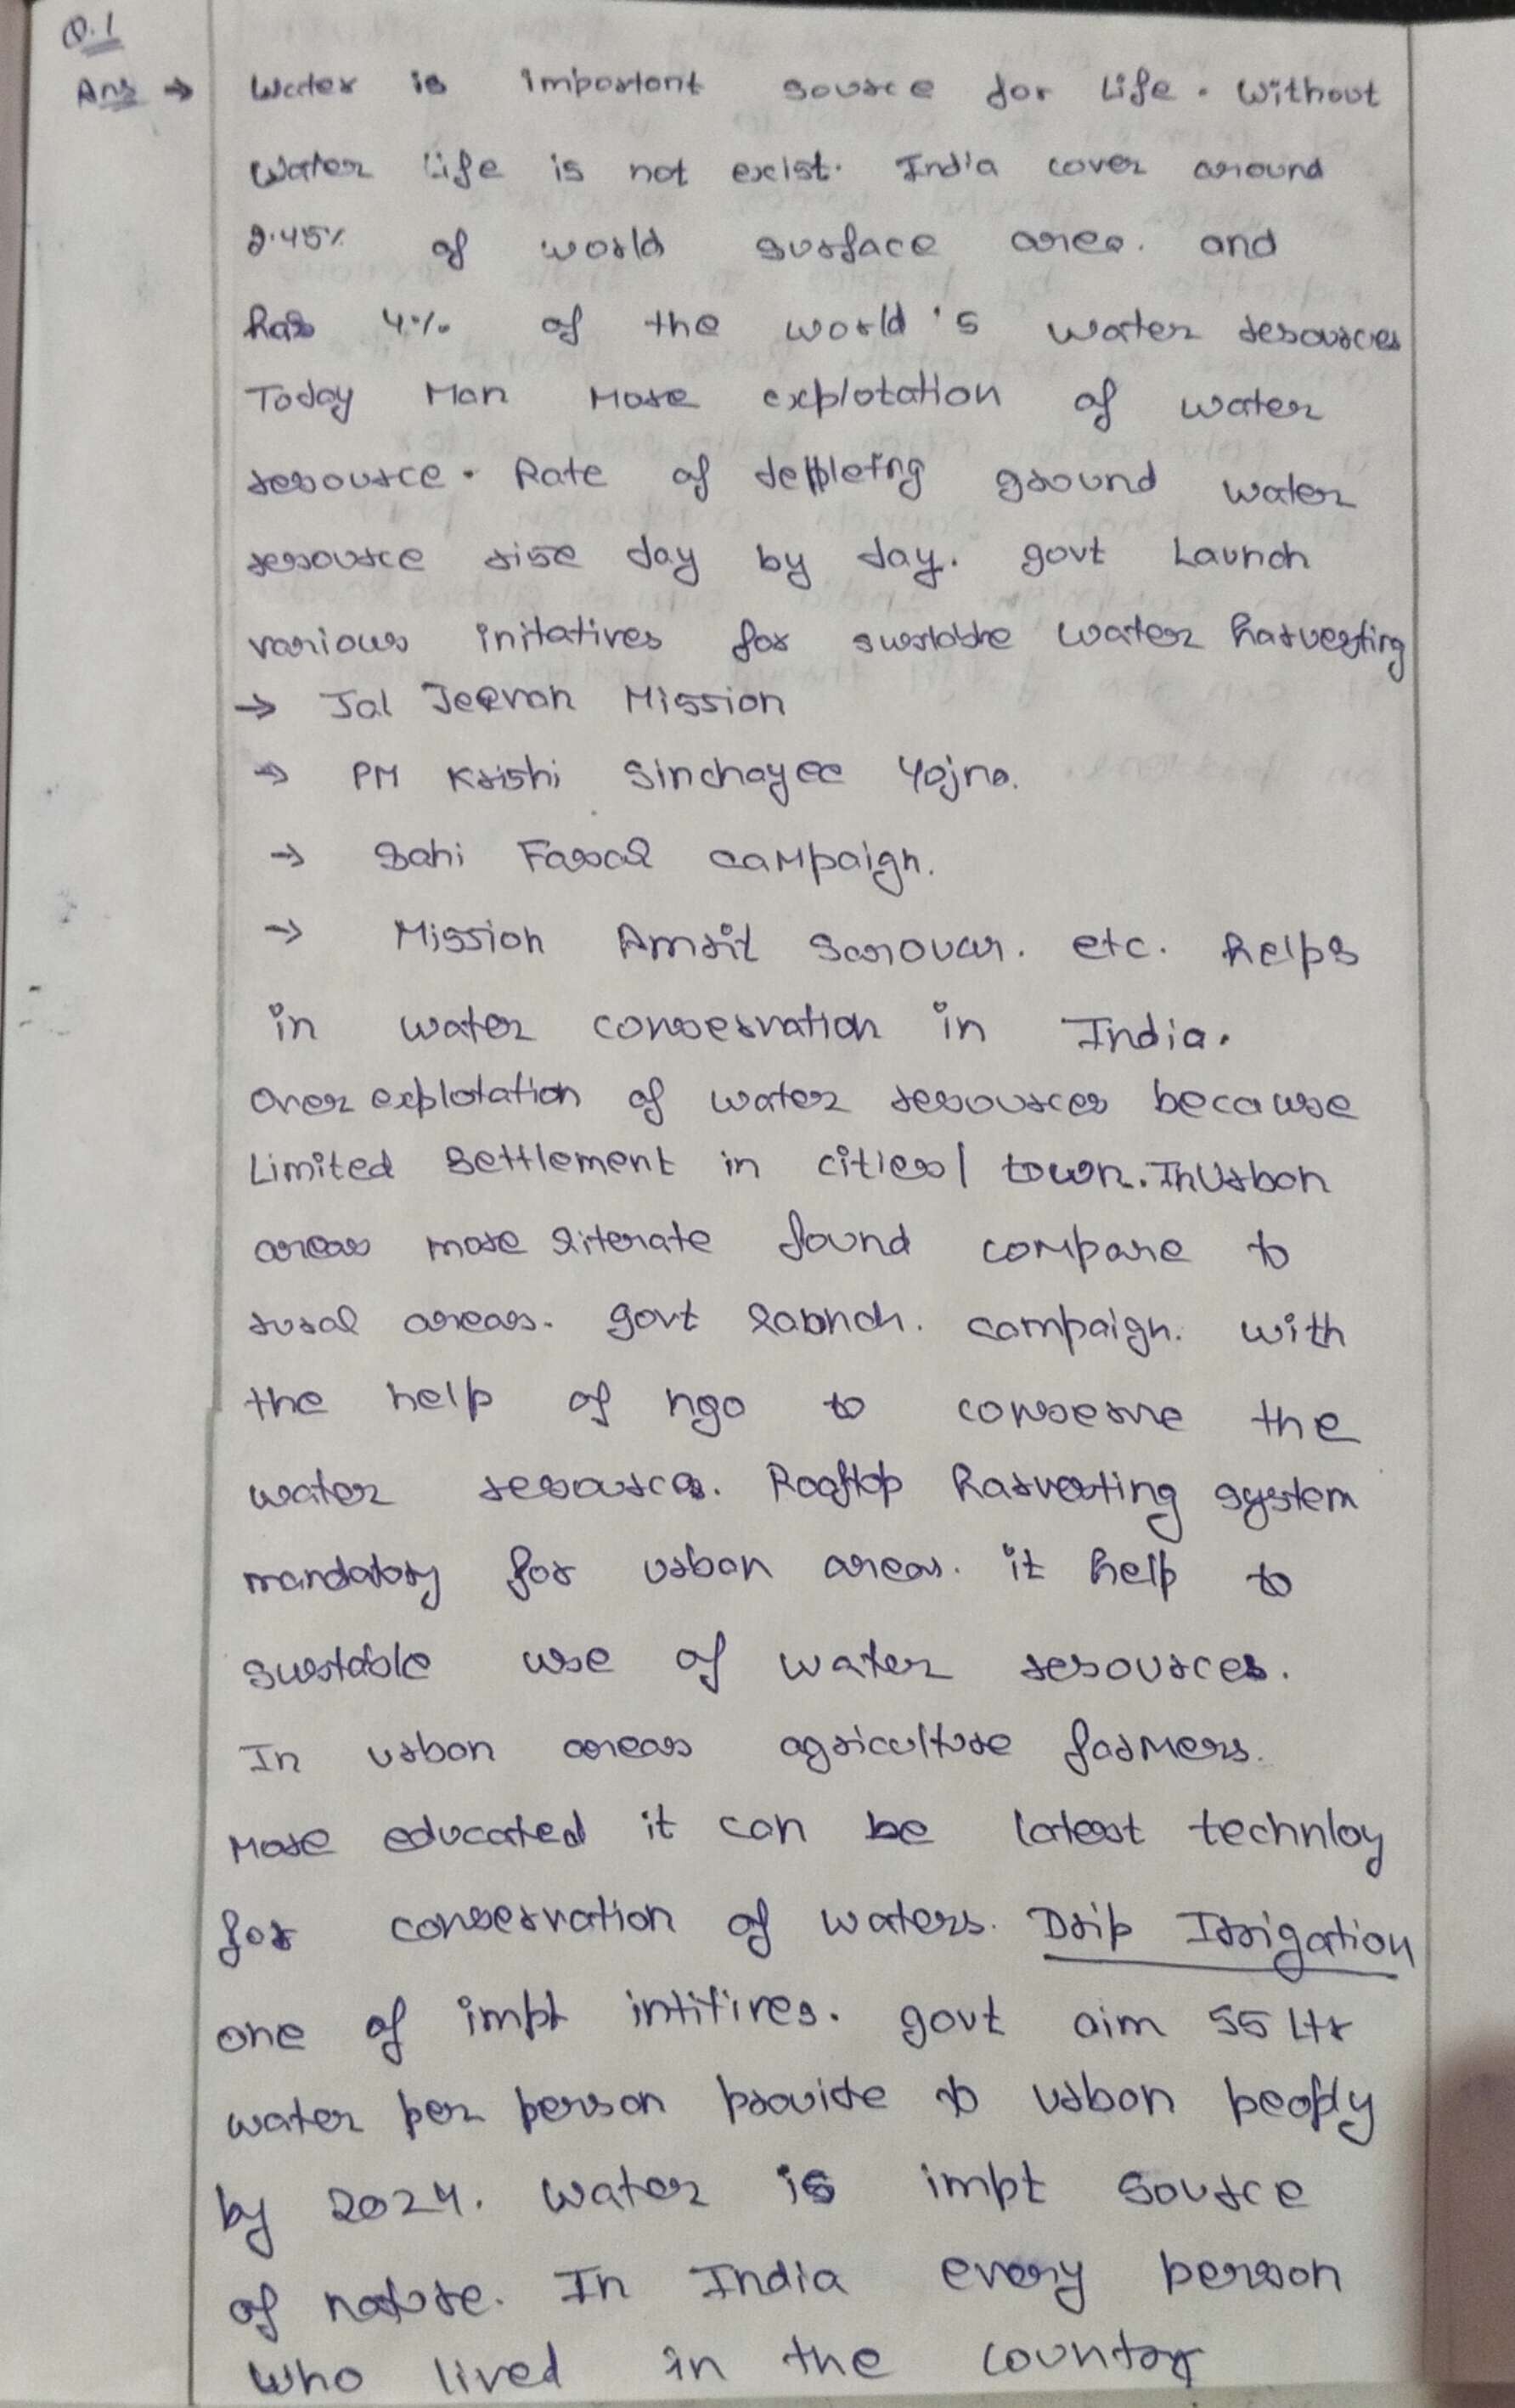 Q.1
Ans → Water is important source for life. Without
Water life is not exist. India cover around
2.45% of world surface area. and
has 4% of the world's water resources
Today Man More explotation of water
resource. Rate of depleting ground water
resource rise day by day. govt Launch
various initatives for sustable water harvesting
→ Jal Jeevan Mission
→ PM Krishi Sinchayee Yojna.
→ Sahi Fasal campaign.
→ Mission Amrit Sarovar. etc. helps
in water conservation in India.
Over explotation of water resources because
Limited Settlement in cities/ town. In Urban
areas more literate found compare to
rural areas. govt launch. campaign. with
the help of ngo to conserve the
water resources. Rooftop harvesting system
mandatory for urban areas. it help to
sustable use of water resources.
In urban areas agriculture farmers.
More educated it can be latest technloy
for conservation of waters. Drip Irrigation
one of impt intitives. govt aim 55 Ltr
water per person provide to urban peoply
by 2024. Water is impt source
of nature. In India every person
who lived in the country